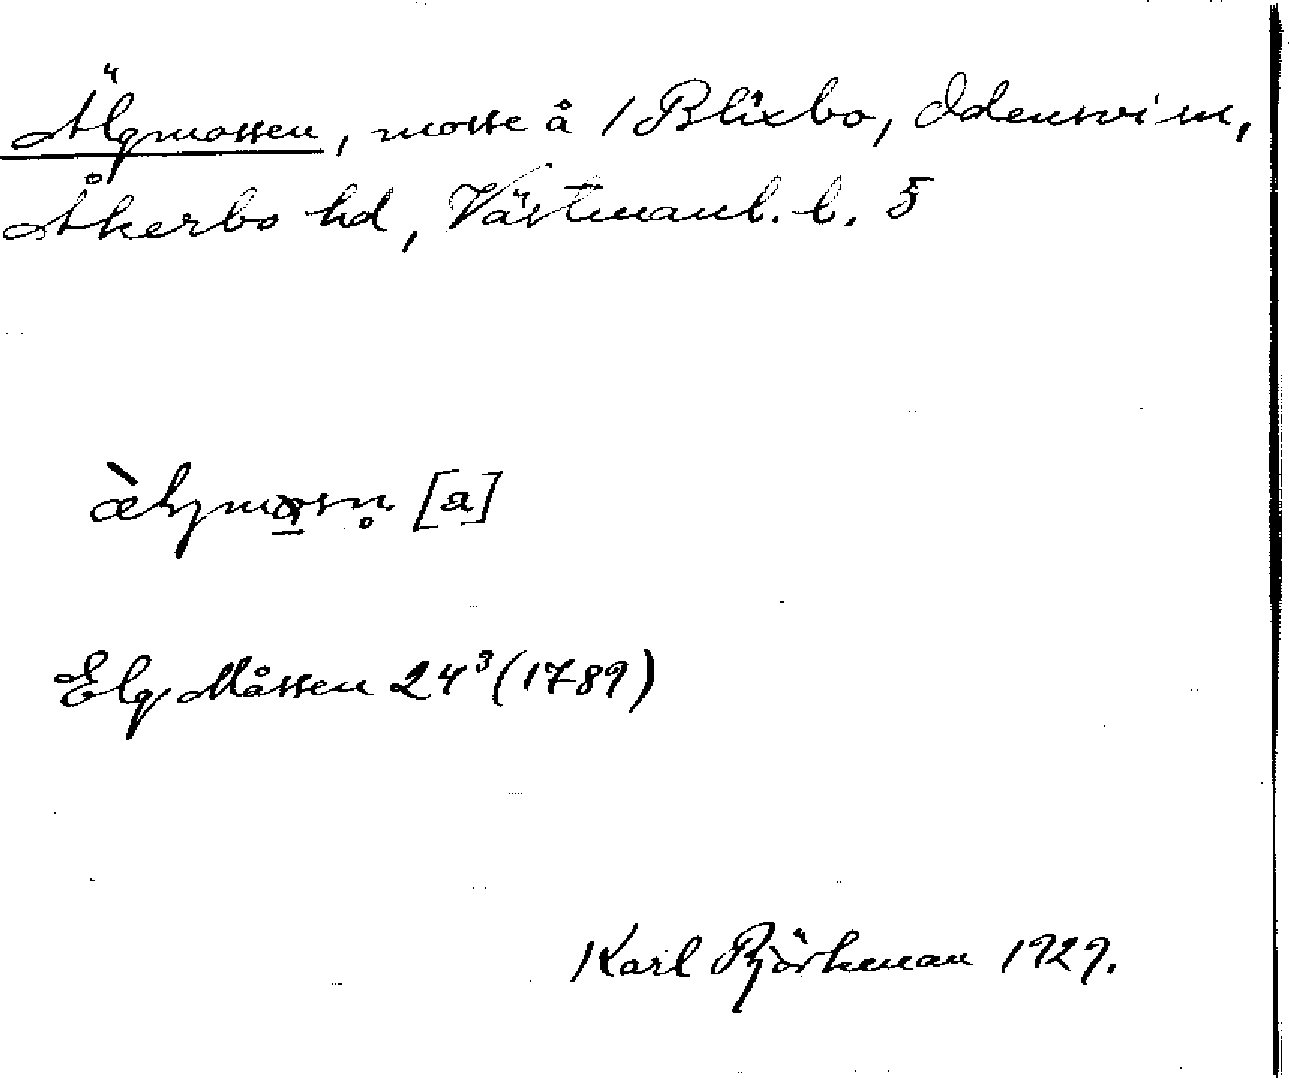 Älgmossen, mosse å 1 Blixbo, Odensvi sn,
Åkerbo hd, Västmanl. l. 5
[a]
Elg Måssen 24³ (1789)
Karl Björkman 1929.